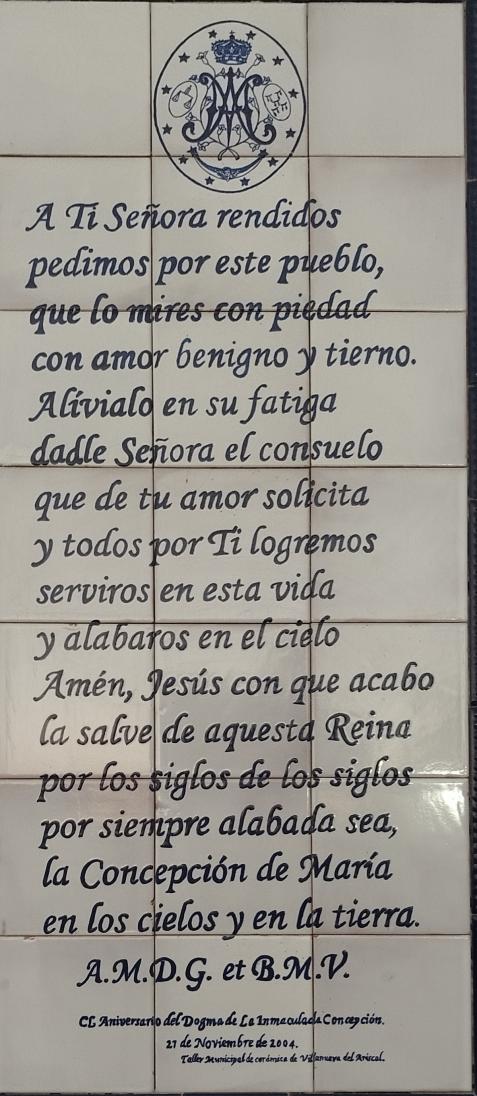 A Ti Señora rendidos
pedimos por este pueblo,
que lo mires con piedad
con amor benigno y tierno.
Alívialo en su fatiga
dadle Señora el consuelo
que de tu amor solicita
y todos por Ti logremos
serviros en esta vida
y alabaros en el cielo
Amén, Jesús con que acabo
la salve de aquesta Reina
por los siglos de los siglos
por siempre alabada sea,
la Concepción de María
en los cielos y en la tierra.
A.M.D.G. et B.M.V.
CL Aniversario del Dogma de La Inmaculada Concepción.
27 de Noviembre de 2004.
Taller Municipal de cerámica de Villanueva del Ariscal.